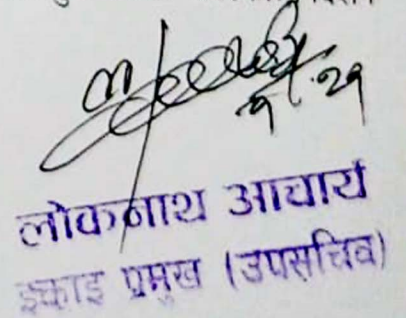 ९.२१
लोकनाथ आचार्य
इकाइ प्रमुख (उपसचिव)